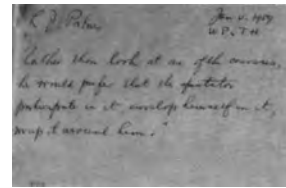 Jan 4. 1959
W. P. & T. H.
Rather than look at an of the canvas,
he would prefer that the spectator
participate in it envelop himself in it,
wrap it around him."